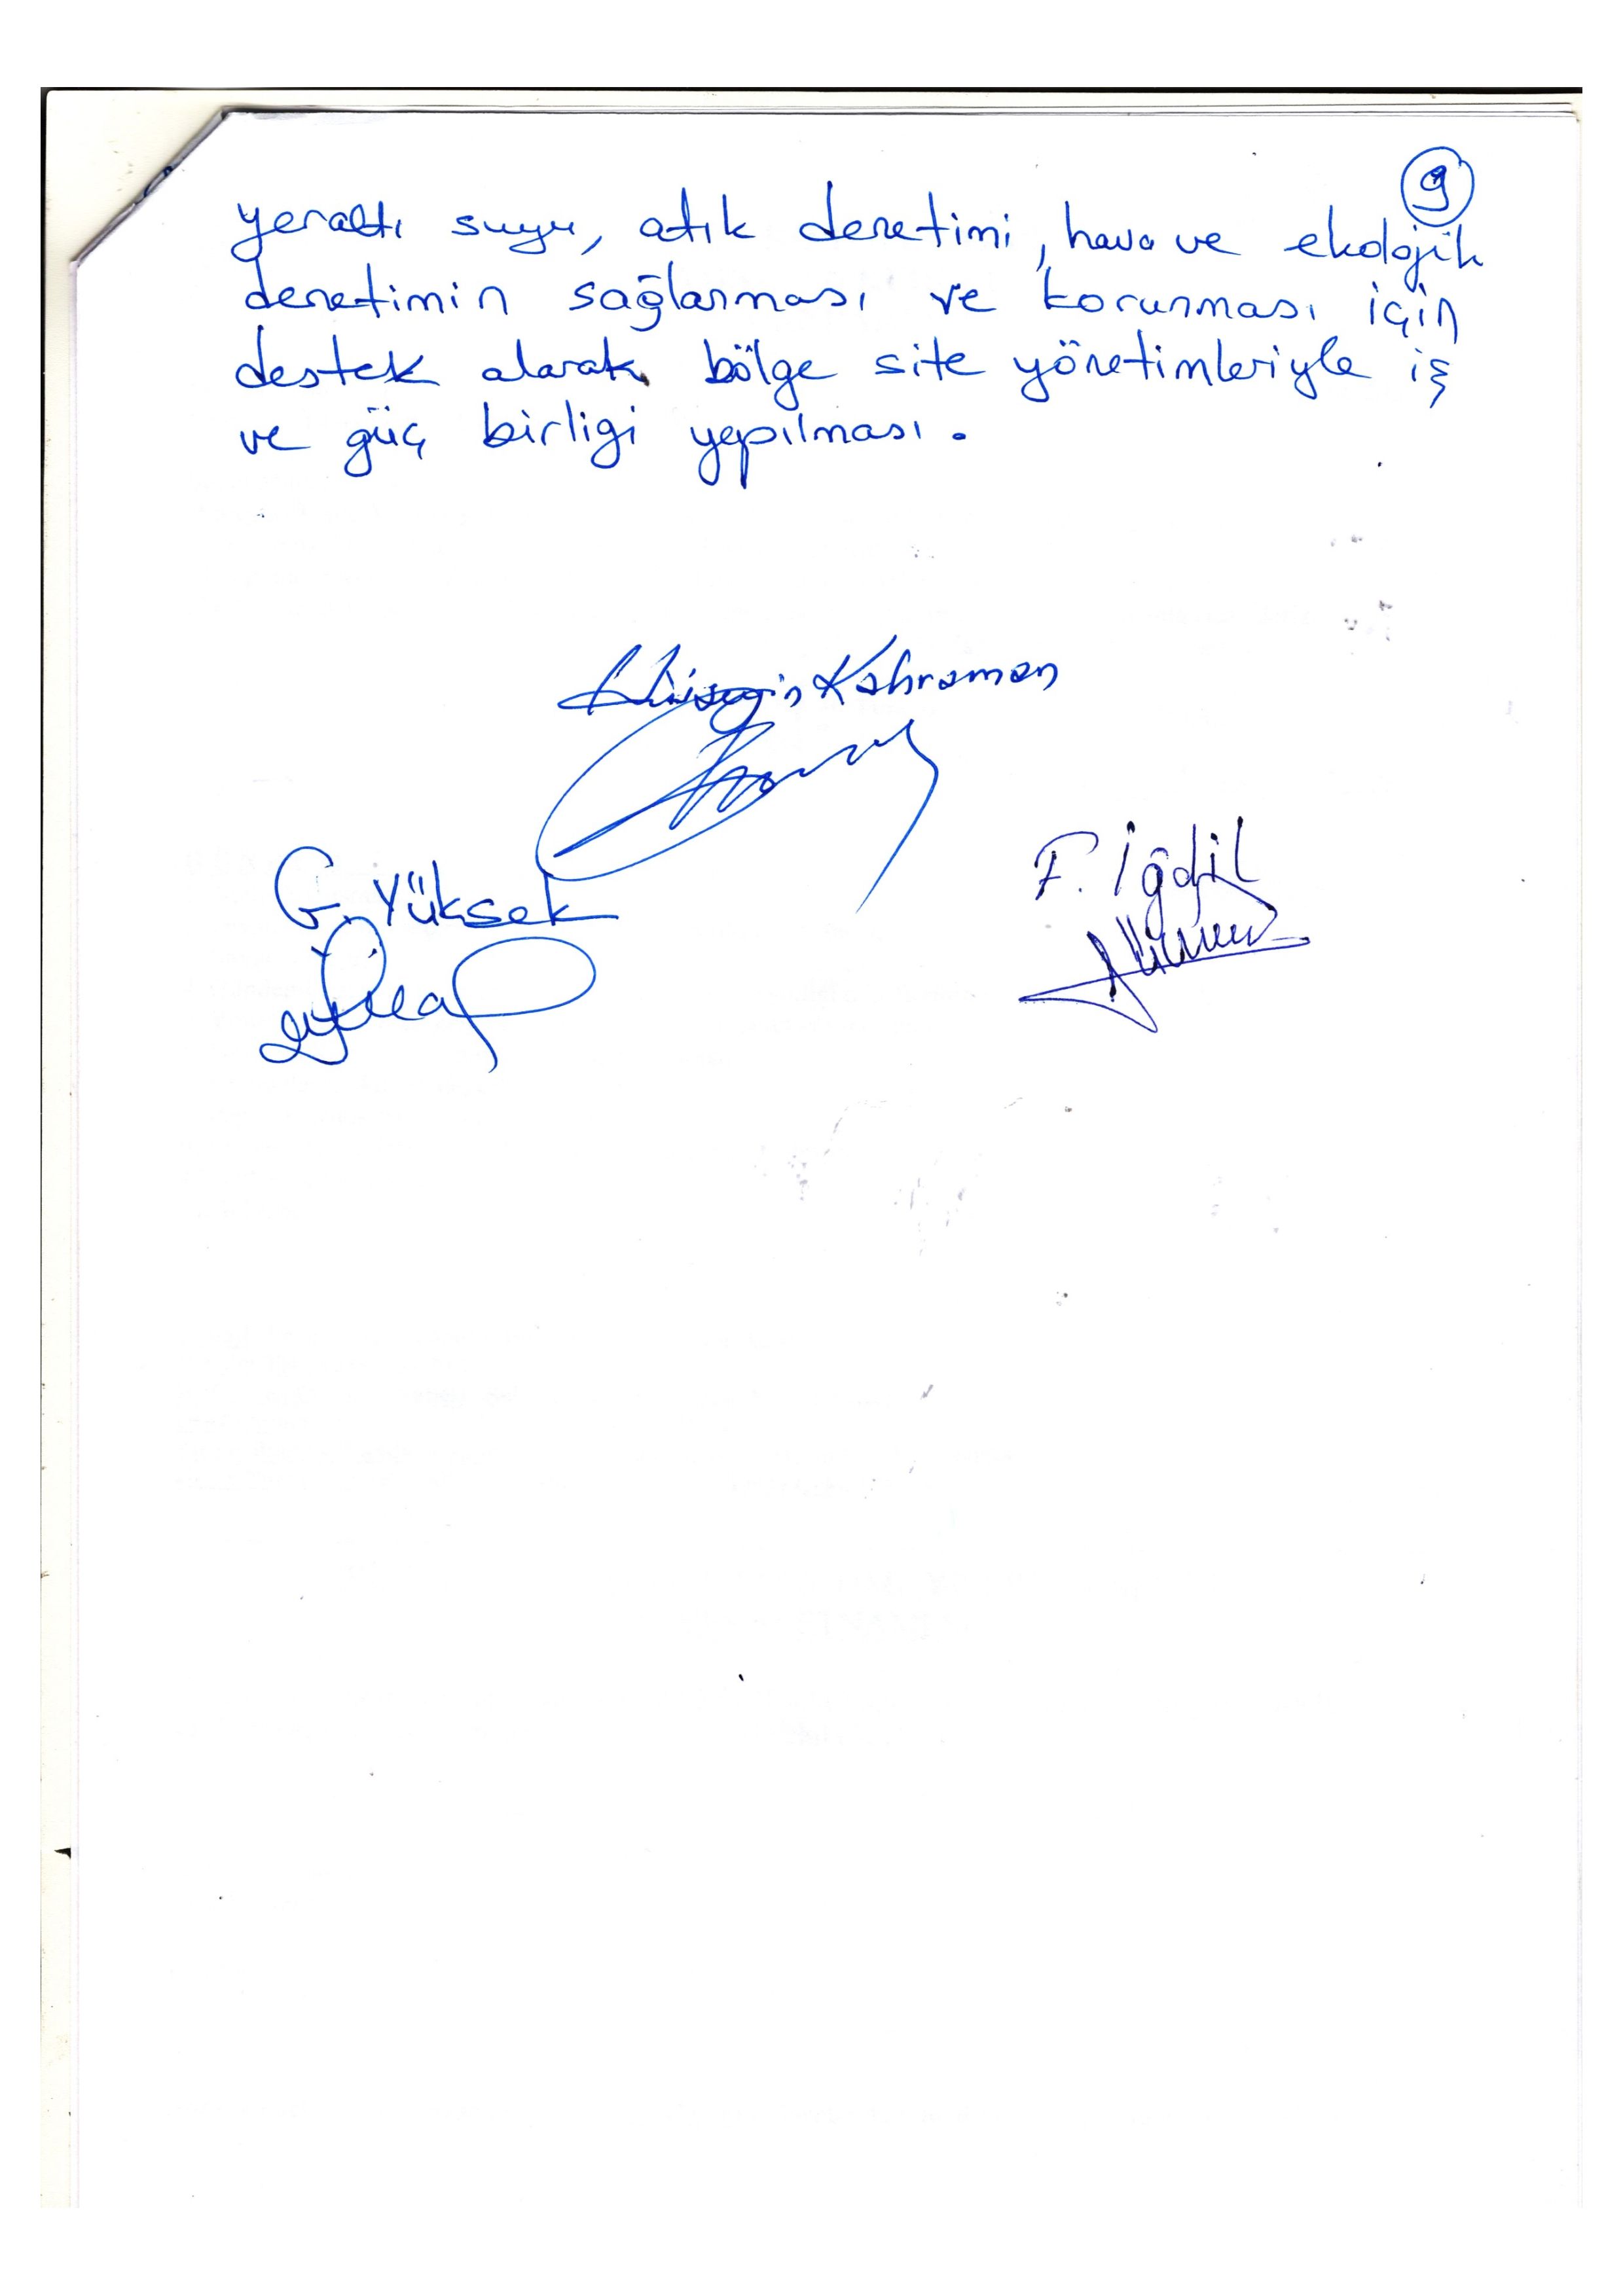 9
yeraltı suyu, atık denetimi, hava ve ekolojik
denetimin sağlanması ve korunması için
destek alarak bölge site yönetimleriyle iş
ve güç birligi yapılması.
Hüseyin Kahraman
G. Yüksek
F. İğdjil